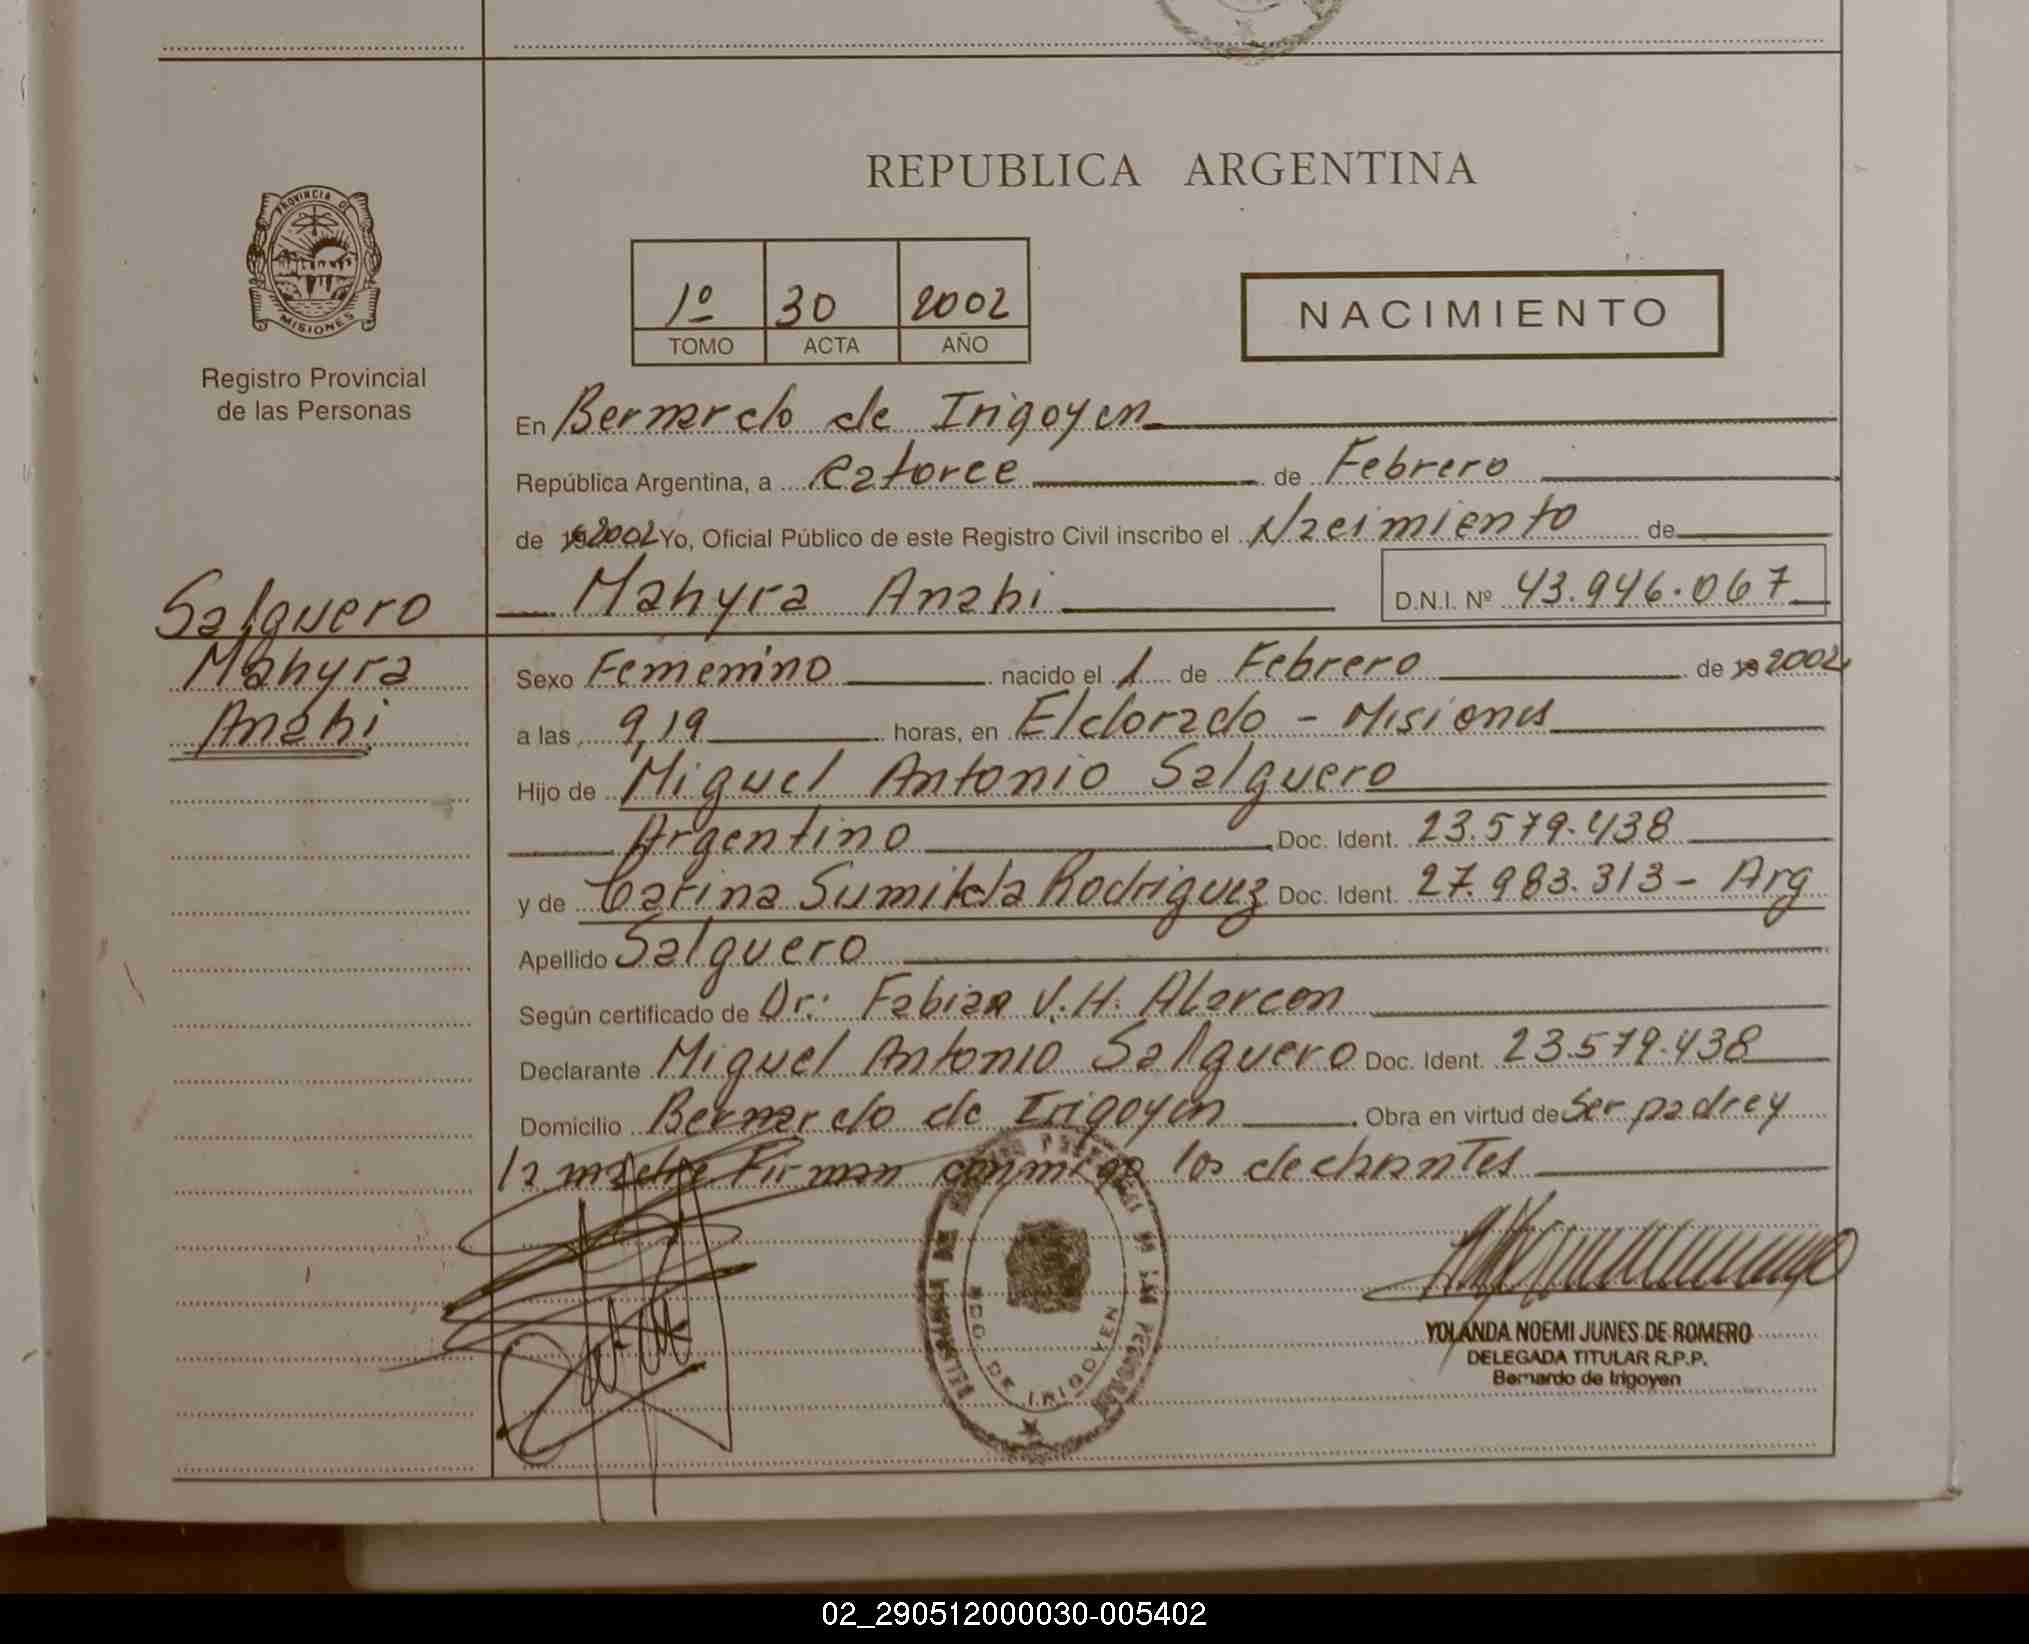 REPUBLICA ARGENTINA
PROVINCIA DE
MISIONES
Registro Provincial
de las Personas
1º 30 2002
TOMO ACTA AÑO
NACIMIENTO
En Bernardo de Irigoyen
República Argentina, a Catorce de Febrero
de 192002 Yo, Oficial Público de este Registro Civil inscribo el Nacimiento de
Mahyra Anahi D.N.I. Nº 43.946.067
Salguero
Mahyra
Anahi
Sexo Femenino nacido el 1 de Febrero de 19 2002
a las 9,19 horas, en Eldorado - Misiones
Hijo de Miguel Antonio Salguero
Argentino Doc. Ident. 23.579.438
y de Carina Sumilda Rodriguez Doc. Ident. 27.983.313 - Arg
Apellido Salguero
Según certificado de Dr: Fabian V.H. Alarcon
Declarante Miguel Antonio Salguero Doc. Ident. 23.579.438
Domicilio Bernardo de Irigoyen Obra en virtud de Ser padre y
la madre Firman conmigo los
BCO. DE IRIGOYEN
YOLANDA NOEMI JUNES DE ROMERO
DELEGADA TITULAR R.P.P.
Bernardo de Irigoyen
02_290512000030-005402